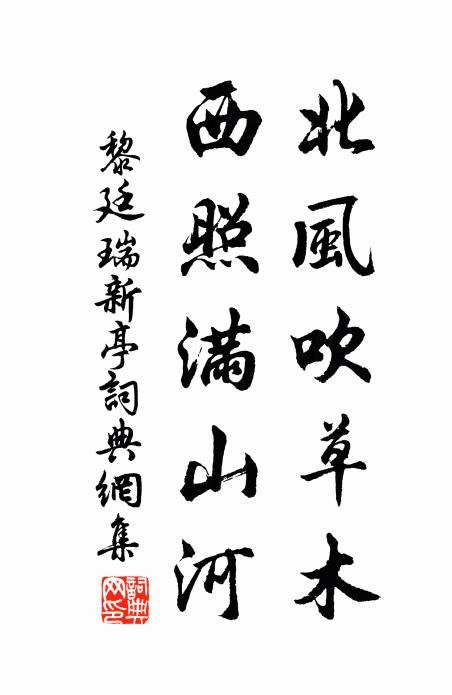 北風吹草木
西照滿山河
黎廷瑞新亭詞典網集
詞典网印